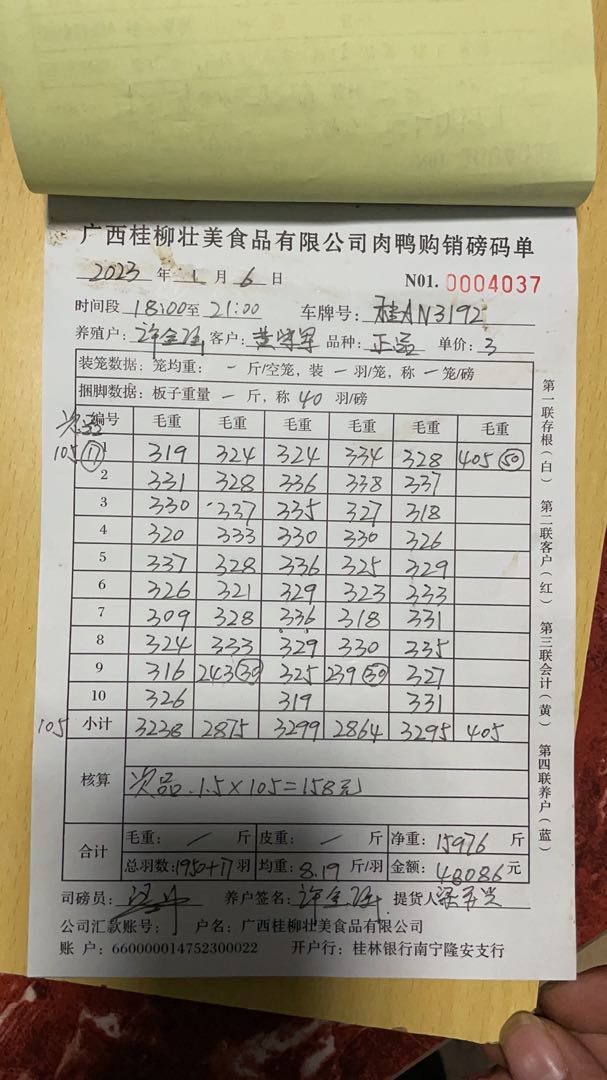 广西桂柳壮美食品有限公司肉鸭购销磅码单
2023 年 1 月 6 日 N01. 0004037
时间段 18:00至 21:00 车牌号: 桂AN3192
养殖户: 许金强 客户: 品种: 正品 单价: 3
装笼数据: 笼均重: — 斤/空笼, 装 — 羽/笼, 称 — 笼/磅
捆脚数据: 板子重量 — 斤, 称 40 羽/磅
次品
编号 毛重 毛重 毛重 毛重 毛重 毛重
105 ⑰ 1 319 324 324 334 328 405 ㊿
2 331 328 336 338 337
3 330 337 335 327 318
4 320 333 330 330 326
5 337 328 336 325 329
6 326 321 329 323 333
7 309 328 336 318 331
8 324 333 329 330 335
9 316 243 ㉚ 325 239 ㉚ 327
10 326 319 331
105 小计 3238 2875 3299 2864 3295 405
核算 次品 1.5×105=158元
合计 毛重: / 斤 皮重: / 斤 净重: 15976 斤
总羽数: 1950+17 羽 均重: 8.19 斤/羽 金额: 48086 元
司磅员: 养户签名: 许金强 提货人
公司汇款账号: 户名: 广西桂柳壮美食品有限公司
账 户: 660000014752300022 开户行: 桂林银行南宁隆安支行
第一联存根(白) 第二联客户(红) 第三联会计(黄) 第四联养户(蓝)